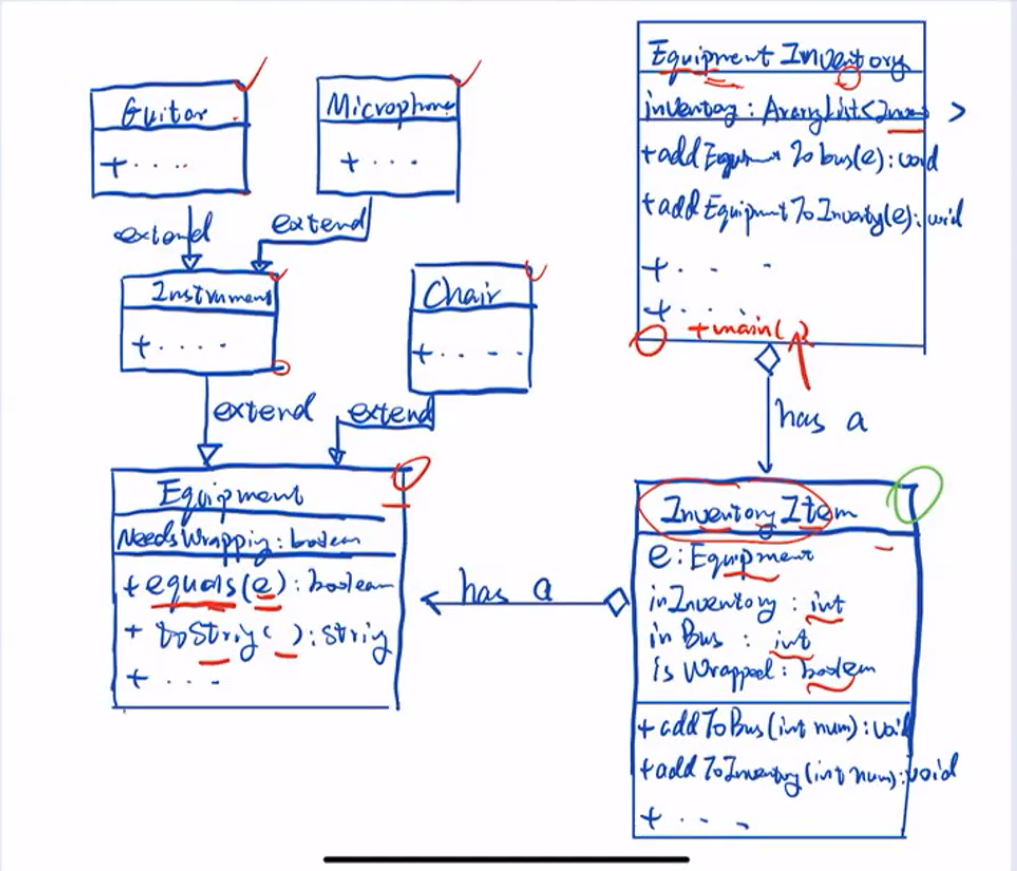 Guitar
+ . . . .
extend
Microphone
+ . . .
extend
Instrument
+ . . . .
extend
Chair
+ . . . .
extend
Equipment
NeedsWrapping : boolean
+ equals(e) : boolean
+ toString( ) : String
+ . . .
has a
Equipment Inventory
inventory : ArrayList< >
+add Equipment To bus(e) : void
+add Equipment To Inventory(e) : void
+ . . .
+ . . .
+main( )
has a
Inventory Item
e : Equipment
inInventory : int
in Bus : int
is Wrapped : boolean
+ addToBus(int num) : void
+add ToInventory(int num) : void
+ . . .